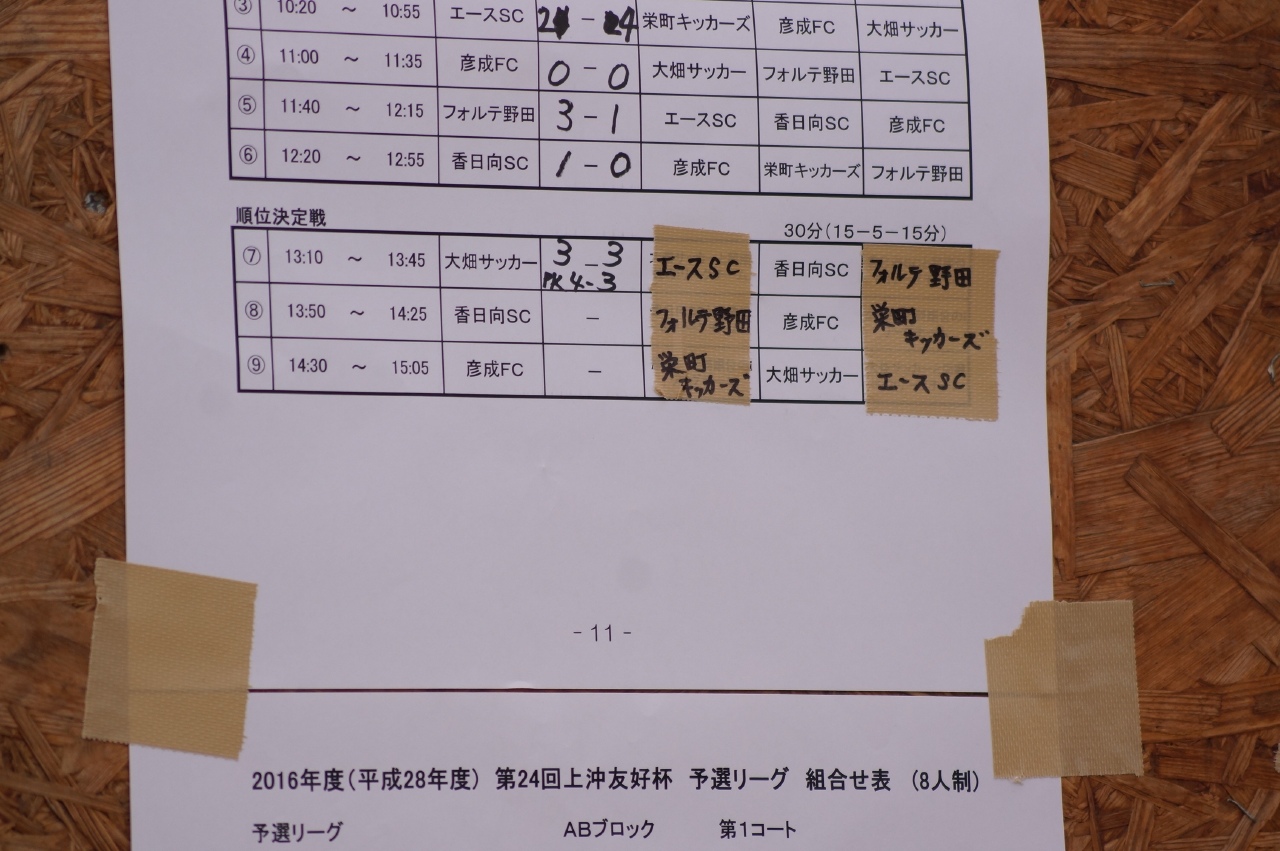 ③ 10:20 ～ 10:55 エースSC 2 - 4 栄町キッカーズ 彦成FC 大畑サッカー
④ 11:00 ～ 11:35 彦成FC 0 - 0 大畑サッカー フォルテ野田 エースSC
⑤ 11:40 ～ 12:15 フォルテ野田 3 - 1 エースSC 香日向SC 彦成FC
⑥ 12:20 ～ 12:55 香日向SC 1 - 0 彦成FC 栄町キッカーズ フォルテ野田
順位決定戦 30分(15－5－15分)
⑦ 13:10 ～ 13:45 大畑サッカー 3 - 3 PK 4-3 エースSC 香日向SC フォルテ野田
⑧ 13:50 ～ 14:25 香日向SC － フォルテ野田 彦成FC 栄町キッカーズ
⑨ 14:30 ～ 15:05 彦成FC － 栄町キッカーズ 大畑サッカー エースSC
- 11 -
2016年度(平成28年度) 第24回上沖友好杯 予選リーグ 組合せ表 (8人制)
予選リーグ ABブロック 第1コート